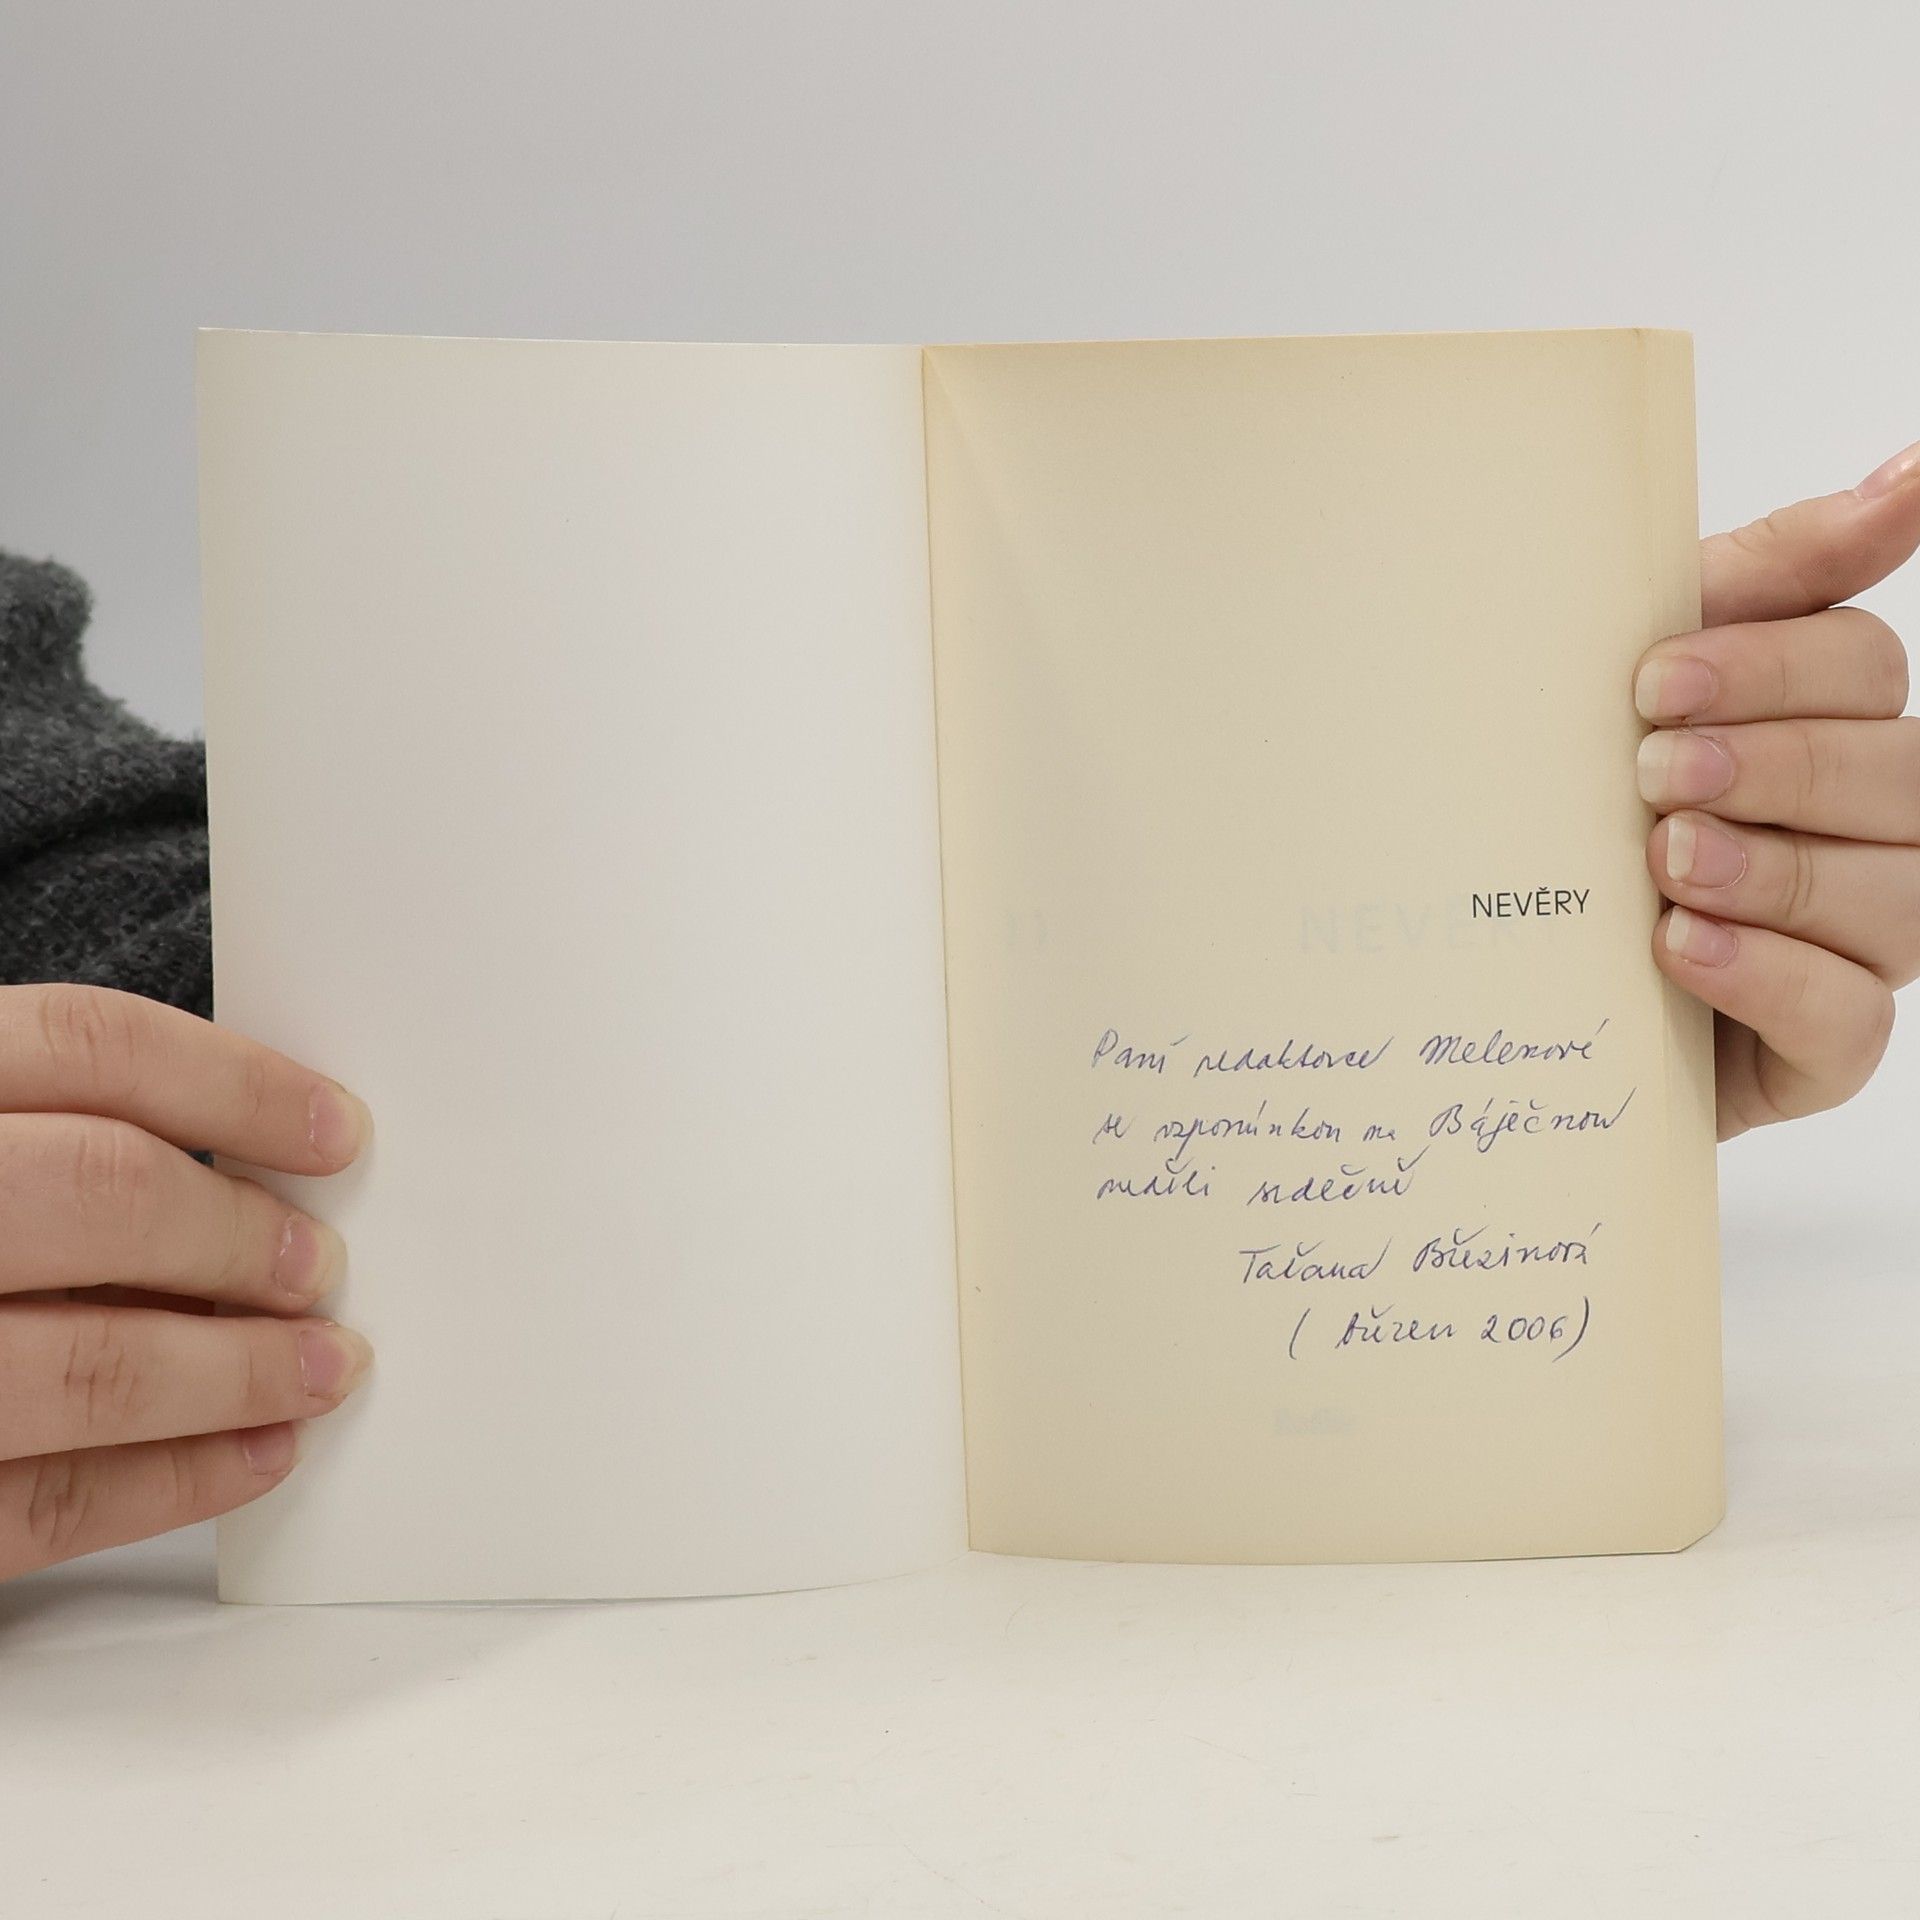 NEVĚRY
Paní redaktorce Melenové
se vzpomínkou na Báječnou
neděli srdečně
Taťana Březinová
(březen 2006)